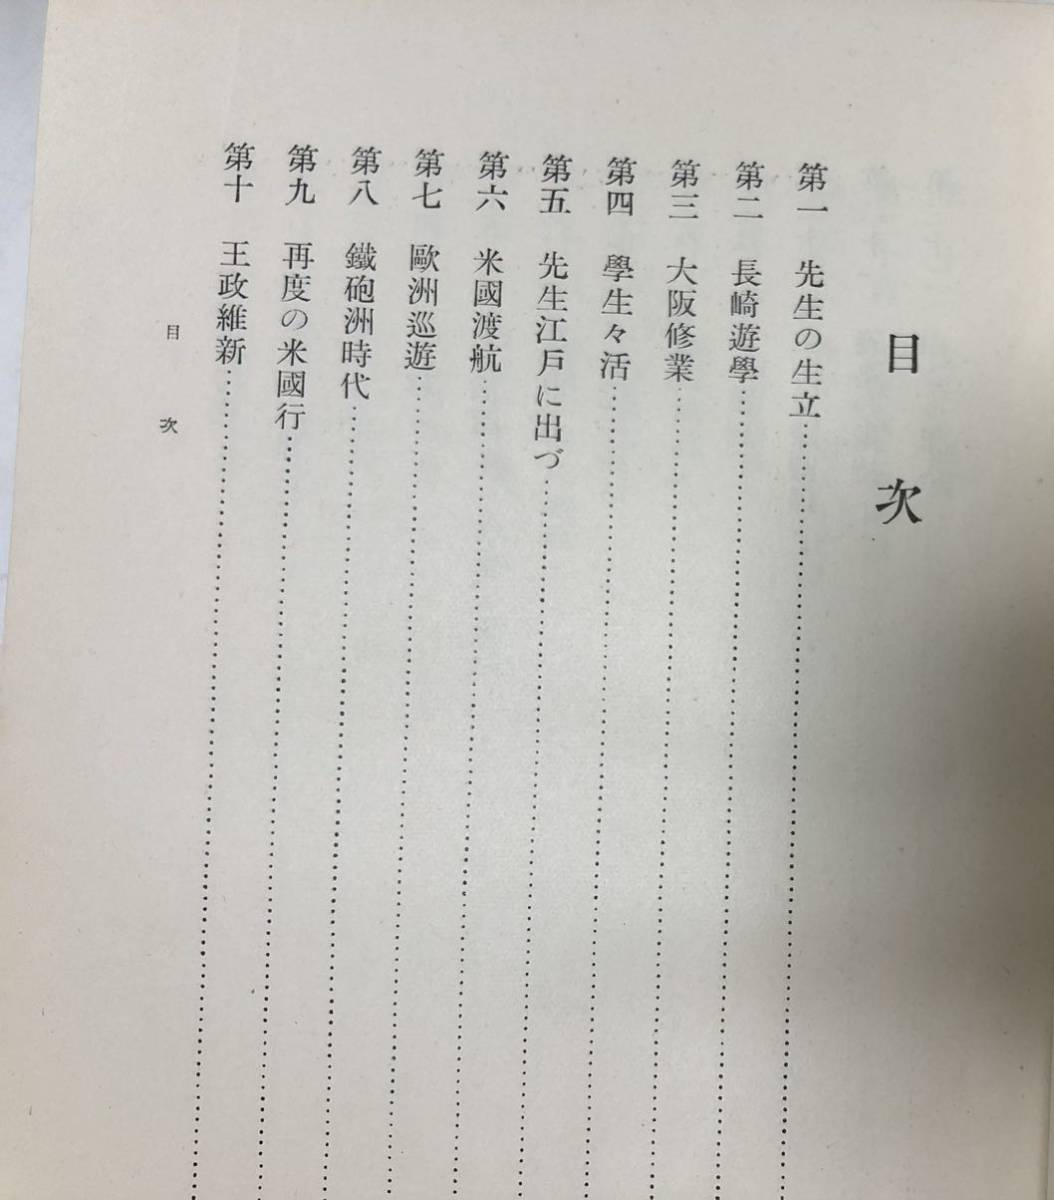 目次
第一 先生の生立
第二 長崎遊學
第三 大阪修業
第四 學生々活
第五 先生江戸に出づ
第六 米國渡航
第七 歐洲巡遊
第八 鐵砲洲時代
第九 再度の米國行
第十 王政維新
目次